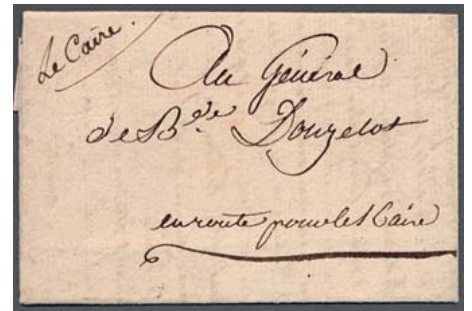 Le Caire.
Au Général
de B.de Donzelot
en route pour le Kaire